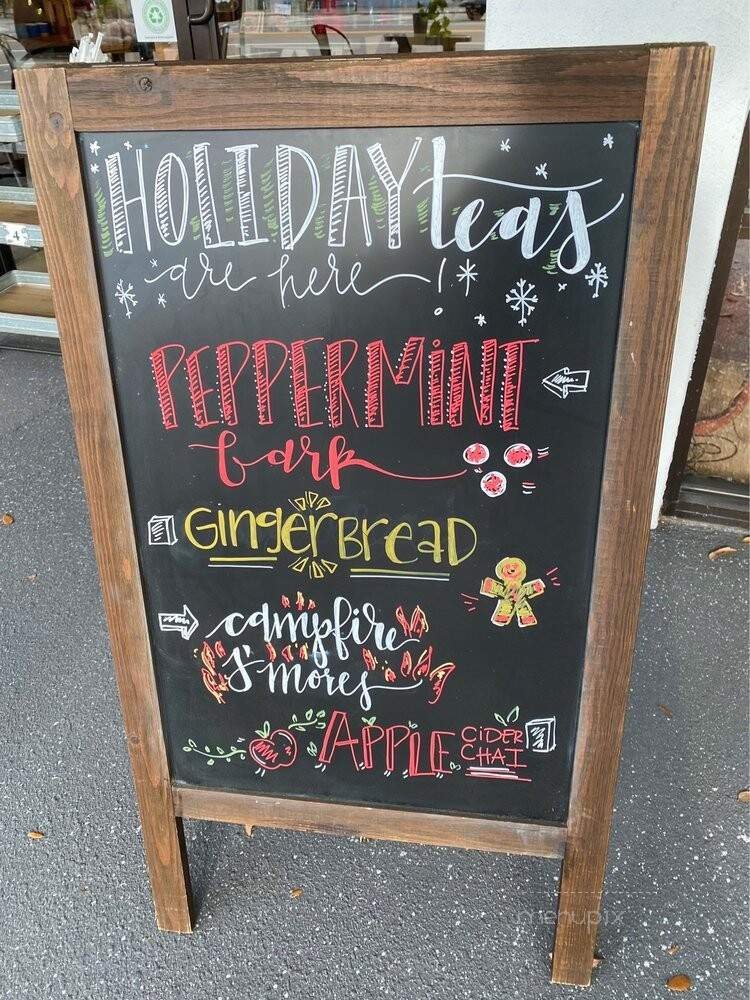 HOLIDAY teas
are here!
PEPPERMINT
bark
GiNGErBREaD
campfire
S'mores
APPLE CiDER
CHAI
menupix